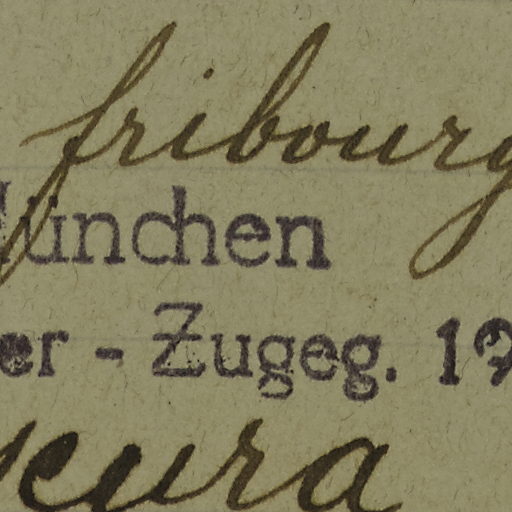 fribourg
München
er - Zugeg. 19